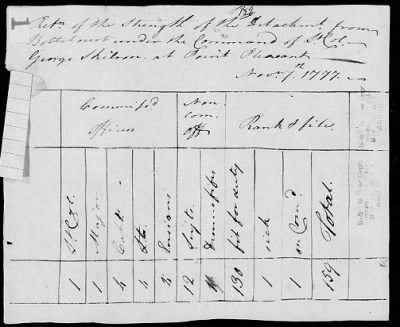 Retn of the Strength of the Detachment from
Bottetourt under the Command of Lt Col.
George Skilron at Point Pleasant
Novr 7th 1777.
Commiss'd officers
Non com. off
Rank & file
Lt. Col. Major Capts Lts Ensigns Sergts Drums & fifes fit for duty sick on Comd Total.
1 1 4 4 5 12 130 1 1 159